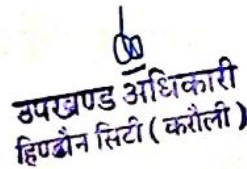 उपखण्ड अधिकारी
हिण्डौन सिटी (करौली)